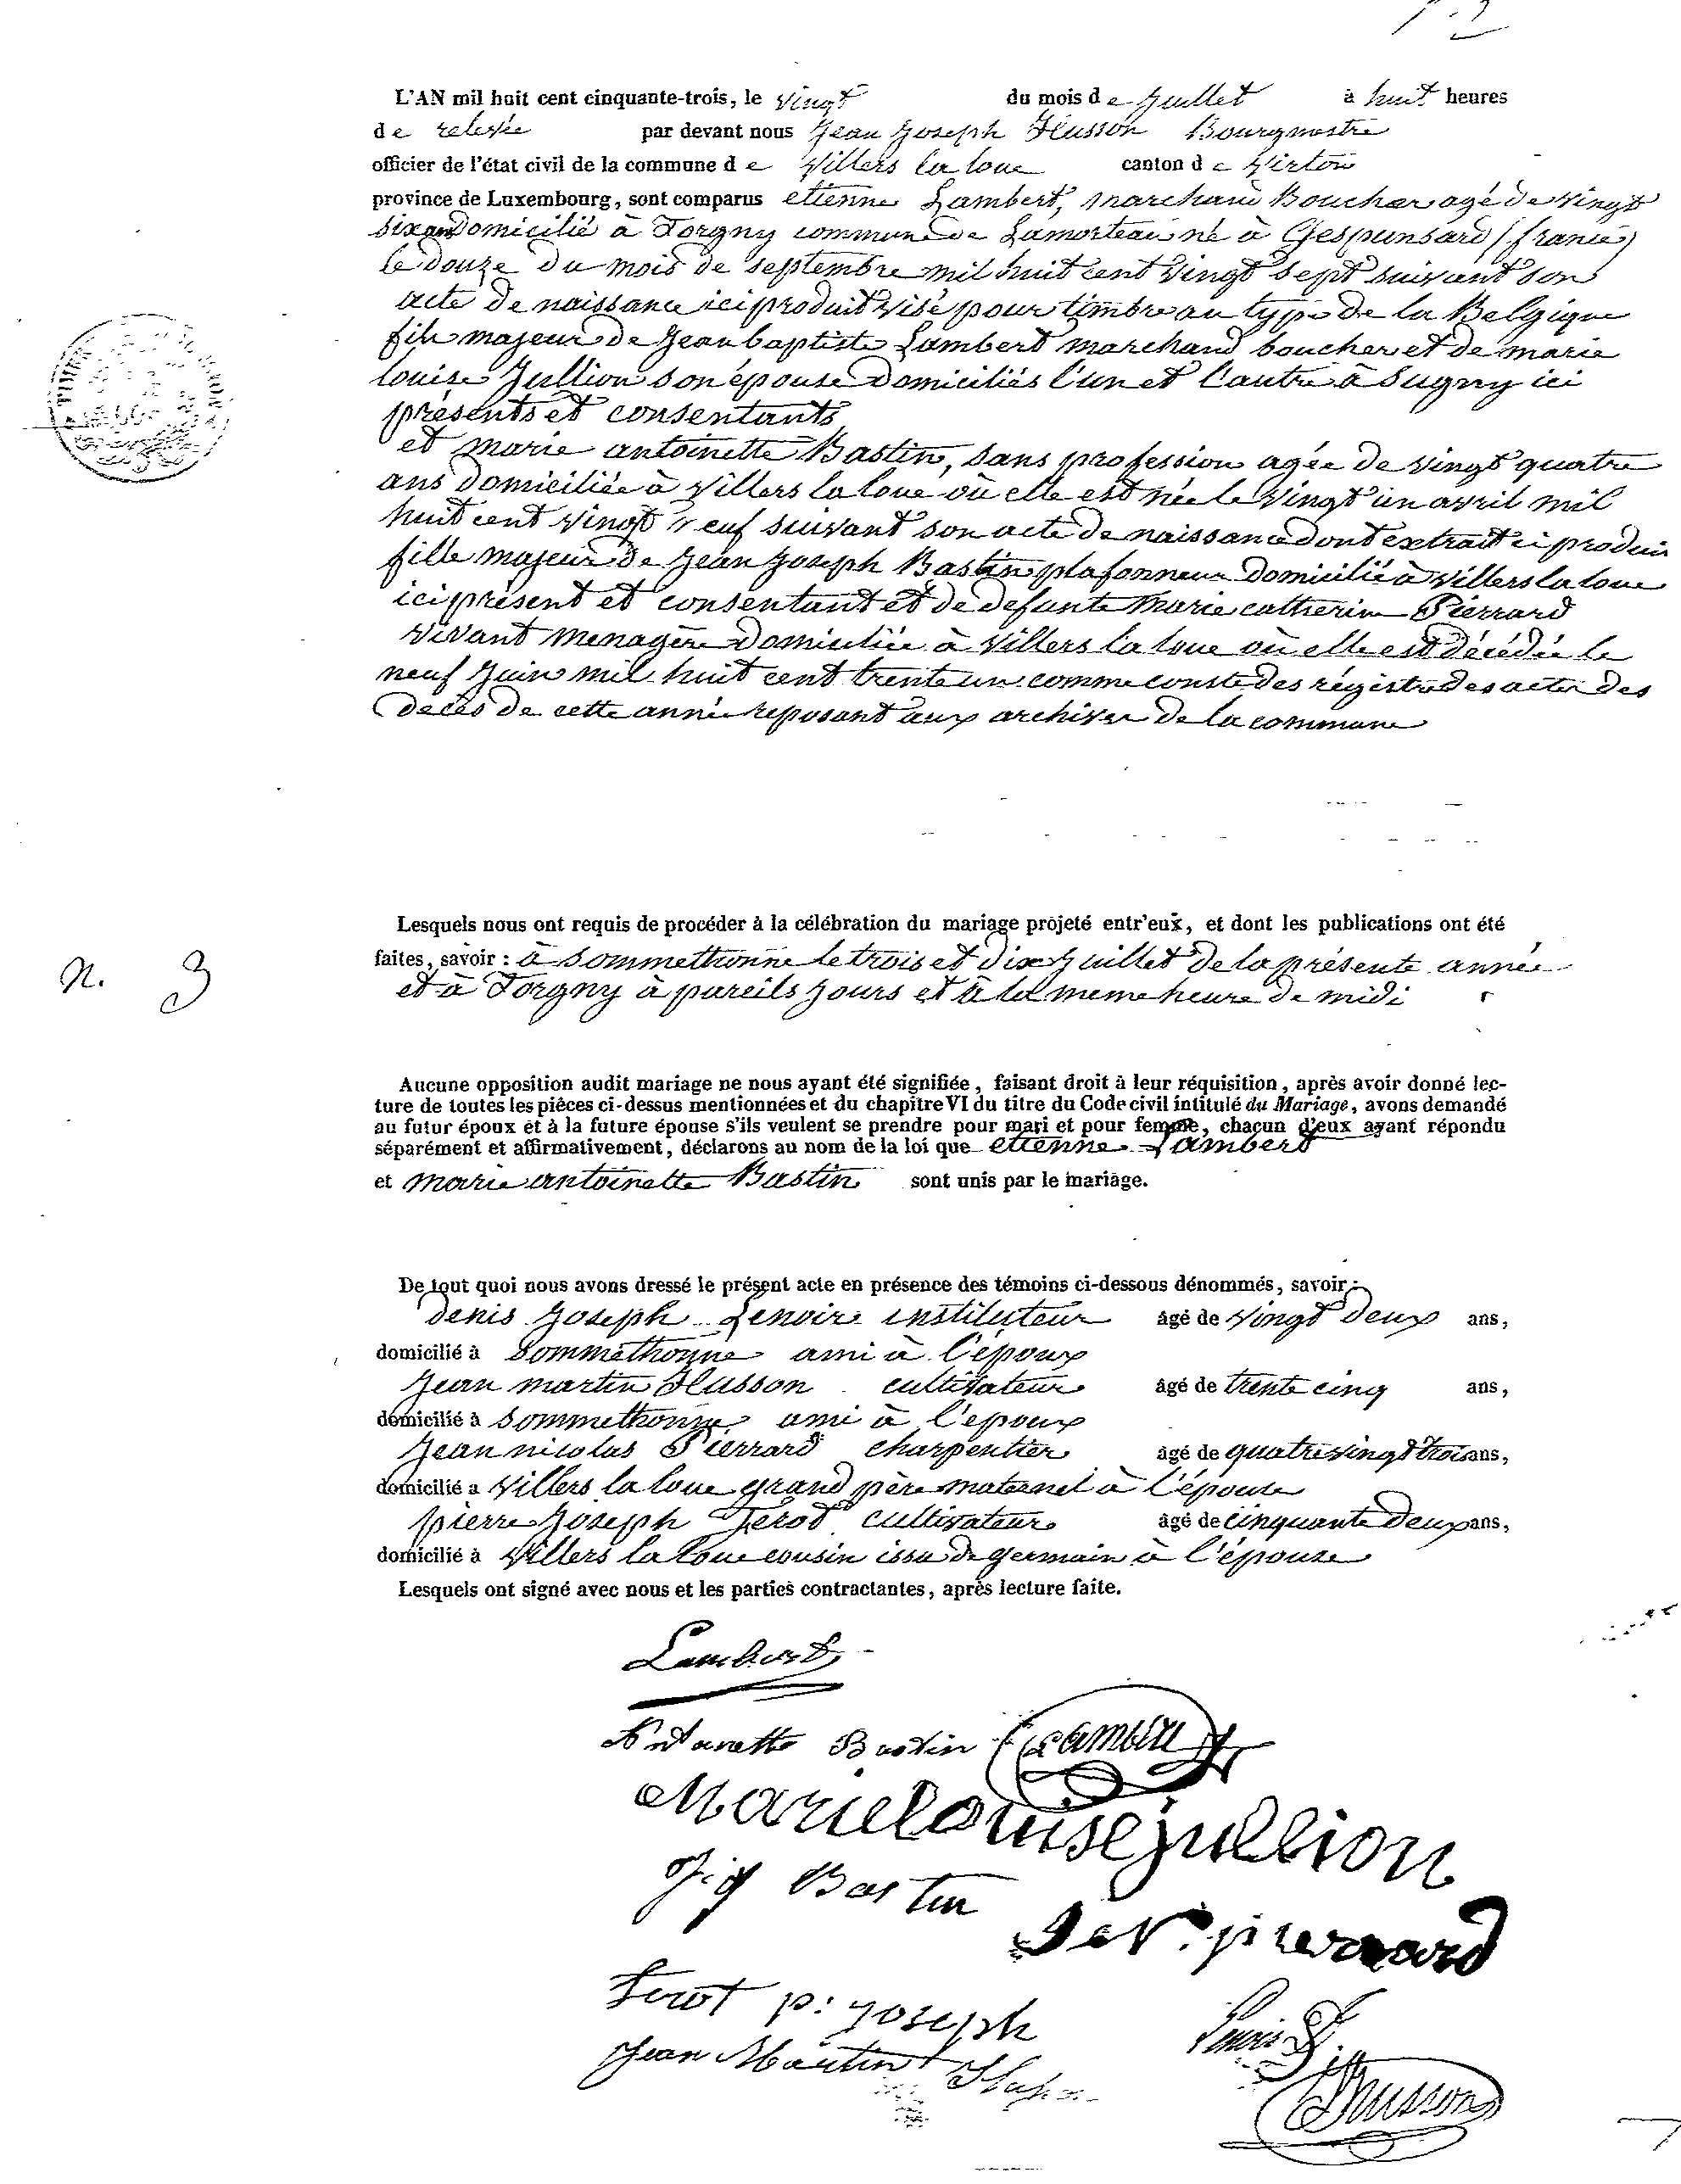 L'AN mil huit cent cinquante-trois, le vingt du mois de Juillet à huit heures
de relevée par devant nous Jean Joseph Husson Bourgmestre
officier de l'état civil de la commune de Villers la loue canton de Virton
province de Luxembourg, sont comparus etienne Lambert, marchand Boucher agé de vingt
six ans domicilié à Torgny commune de Lamorteau né à Gespunsard (france)
le douze du mois de septembre mil huit cent vingt sept suivant son
acte de naissance ici produit visé pour timbre au type de la Belgique
fils majeur de Jean baptiste Lambert marchand boucher et de marie
louise Jullion son épouse domiciliés l'un et l'autre à Sugny ici
présents et consentants
et marie antoinette Bastin, sans profession agée de vingt quatre
ans domiciliée à villers la loue où elle est née le vingt un avril mil
huit cent vingt neuf suivant son acte de naissance dont extrait ci produit
fille majeure de Jean Joseph Bastin plafonneur domicilié à villers la loue
ici présent et consentant et de defunte Marie catherine Pierrard
vivant menagère domiciliée à villers la loue où elle est décédée le
neuf Juin mil huit cent trente un comme conste des régistres des actes des
decès de cette année reposant aux archives de la commune
Lesquels nous ont requis de procéder à la célébration du mariage projeté entr'eux, et dont les publications ont été
faites, savoir : à Sommethonne le trois et dix Juillet de la présente année
N. 3
et à Torgny à pareils jours et à la meme heure de midi
Aucune opposition audit mariage ne nous ayant été signifiée, faisant droit à leur réquisition, après avoir donné lec-
ture de toutes les pièces ci-dessus mentionnées et du chapitre VI du titre du Code civil intitulé du Mariage, avons demandé
au futur époux et à la future épouse s'ils veulent se prendre pour mari et pour femme, chacun d'eux ayant répondu
séparément et affirmativement, déclarons au nom de la loi que etienne Lambert
et marie antoinette Bastin sont unis par le mariage.
De tout quoi nous avons dressé le présent acte en présence des témoins ci-dessous dénommés, savoir :
denis Joseph Lenoir instituteur âgé de vingt deux ans,
domicilié à Sommethonne ami à l'époux
Jean martin Husson cultivateur âgé de trente cinq ans,
domicilié à Sommethonne ami à l'epoux
Jean nicolas Pierrard charpentier âgé de quatre vingt trois ans,
domicilié a villers la loue grand père maternel à l'épouse
pierre Joseph Ferot cultivateur âgé de cinquante deux ans,
domicilié à Villers la loue cousin issu de germain à l'épouse
Lesquels ont signé avec nous et les parties contractantes, après lecture faite.
Lambert
Bastin Lambert
Marie Louise jullion
J. J Bastin
pierrard
Ferot p: joseph
Lenoir
Jean Martin
Husson